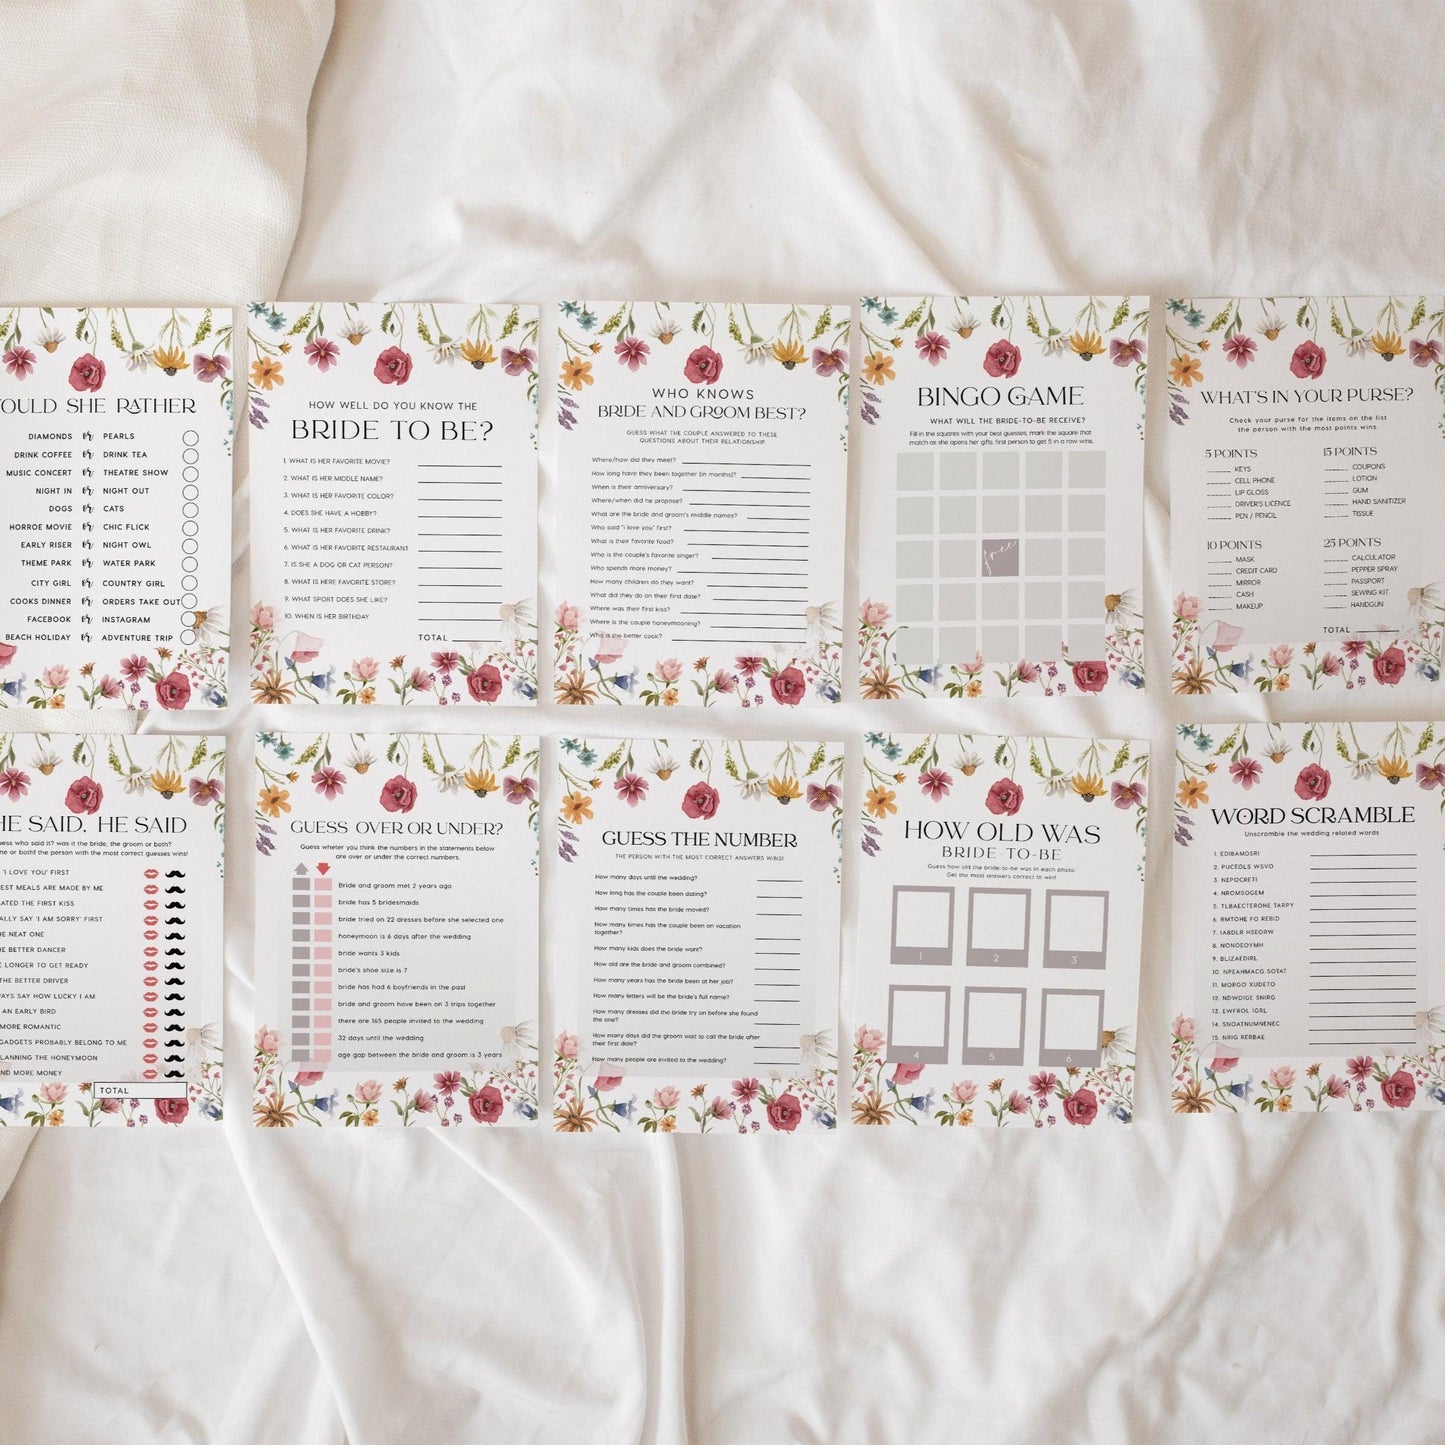 OULD SHE RATHER
DIAMONDS or PEARLS
DRINK COFFEE or DRINK TEA
MUSIC CONCERT or THEATRE SHOW
NIGHT IN or NIGHT OUT
DOGS or CATS
HORROE MOVIE or CHIC FLICK
EARLY RISER or NIGHT OWL
THEME PARK or WATER PARK
CITY GIRL or COUNTRY GIRL
COOKS DINNER or ORDERS TAKE OUT
FACEBOOK or INSTAGRAM
BEACH HOLIDAY or ADVENTURE TRIP
HOW WELL DO YOU KNOW THE
BRIDE TO BE?
1. WHAT IS HER FAVORITE MOVIE?
2. WHAT IS HER MIDDLE NAME?
3. WHAT IS HER FAVORITE COLOR?
4. DOES SHE HAVE A HOBBY?
5. WHAT IS HER FAVORITE DRINK?
6. WHAT IS HER FAVORITE RESTAURANT
7. IS SHE A DOG OR CAT PERSON?
8. WHAT IS HERE FAVORITE STORE?
9. WHAT SPORT DOES SHE LIKE?
10. WHEN IS HER BIRTHDAY
TOTAL
WHO KNOWS
BRIDE AND GROOM BEST?
GUESS WHAT THE COUPLE ANSWERED TO THESE
QUESTIONS ABOUT THEIR RELATIONSHIP
Where/how did they meet?
How long have they been together (in months)?
When is their anniversary?
Where/when did he propose?
What are the bride and groom's middle names?
Who said "i love you" first?
What is their favorite food?
Who is the couple's favorite singer?
Who spends more money?
How many children do they want?
What did they do on their first date?
Where was their first kiss?
Where is the couple honeymooning?
Who is the better cook?
BINGO GAME
WHAT WILL THE BRIDE-TO-BE RECEIVE?
Fill in the squares with your best guesses, mark the square that
match as she opens her gifts. first person to get 5 in a row wins.
free
WHAT'S IN YOUR PURSE?
Check your purse for the items on the list
the person with the most points wins.
5 POINTS
KEYS
CELL PHONE
LIP GLOSS
DRIVER'S LICENCE
PEN / PENCIL
15 POINTS
COUPONS
LOTION
GUM
HAND SANITIZER
TISSUE
10 POINTS
MASK
CREDIT CARD
MIRROR
CASH
MAKEUP
25 POINTS
CALCULATOR
PEPPER SPRAY
PASSPORT
SEWING KIT
HANDGUN
TOTAL
HE SAID, HE SAID
uess who said it? was it the bride, the groom or both?
me or both! the person with the most correct guesses wins!
'I LOVE YOU' FIRST
EST MEALS ARE MADE BY ME
ATED THE FIRST KISS
ALLY SAY 'I AM SORRY' FIRST
HE NEAT ONE
HE BETTER DANCER
E LONGER TO GET READY
THE BETTER DRIVER
AYS SAY HOW LUCKY I AM
AN EARLY BIRD
MORE ROMANTIC
GADGETS PROBABLY BELONG TO ME
LANNING THE HONEYMOON
ND MORE MONEY
TOTAL
GUESS OVER OR UNDER?
Guess wheter you think the numbers in the statements below
are over or under the correct numbers.
Bride and groom met 2 years ago
bride has 5 bridesmaids
bride tried on 22 dresses before she selected one
honeymoon is 6 days after the wedding
bride wants 3 kids
bride's shoe size is 7
bride has had 6 boyfriends in the past
bride and groom have been on 3 trips together
there are 165 people invited to the wedding
32 days until the wedding
age gap between the bride and groom is 3 years
GUESS THE NUMBER
THE PERSON WITH THE MOST CORRECT ANSWERS WINS!
How many days until the wedding?
How long has the couple been dating?
How many times has the bride moved?
How many times has the couple been on vacation
together?
How many kids does the bride want?
How old are the bride and groom combined?
How many years has the bride been at her job?
How many letters will be the bride's full name?
How many dresses did the bride try on before she found
the one?
How many days did the groom wait to call the bride after
their first date?
How many people are invited to the wedding?
HOW OLD WAS
BRIDE-TO-BE
Guess how old the bride-to-be was in each photo.
Get the most answers correct to win!
1 2 3
4 5 6
WORD SCRAMBLE
Unscramble the wedding related words
1. EDIBAMDSRI
2. PUCEOLS WSVO
3. NEPOCRETI
4. NROMSOGEM
5. TLBAECTEROHE TARPY
6. RMTOHE FO REBID
7. IABDLR HSEORW
8. NONOEOYMH
9. BLIZAEDIRL
10. NPEAHMACG SOTAT
11. MORGO XUDETO
12. NDWDIGE SNIRG
13. EWFROL IGRL
14. SNOATNUMNENEC
15. NRIG RERBAE